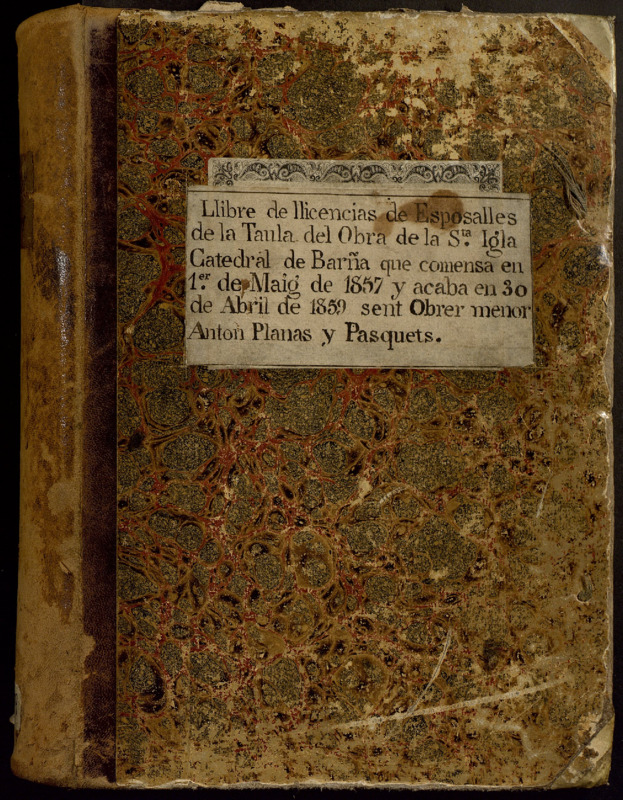 Llibre de llicencias de Esposalles
de la Taula del Obra de la S.ta Igla
Catedral de Barña que comensa en
1.er de Maig de 1857 y acaba en 30
de Abril de 1859 sent Obrer menor
Anton Planas y Pasquets.